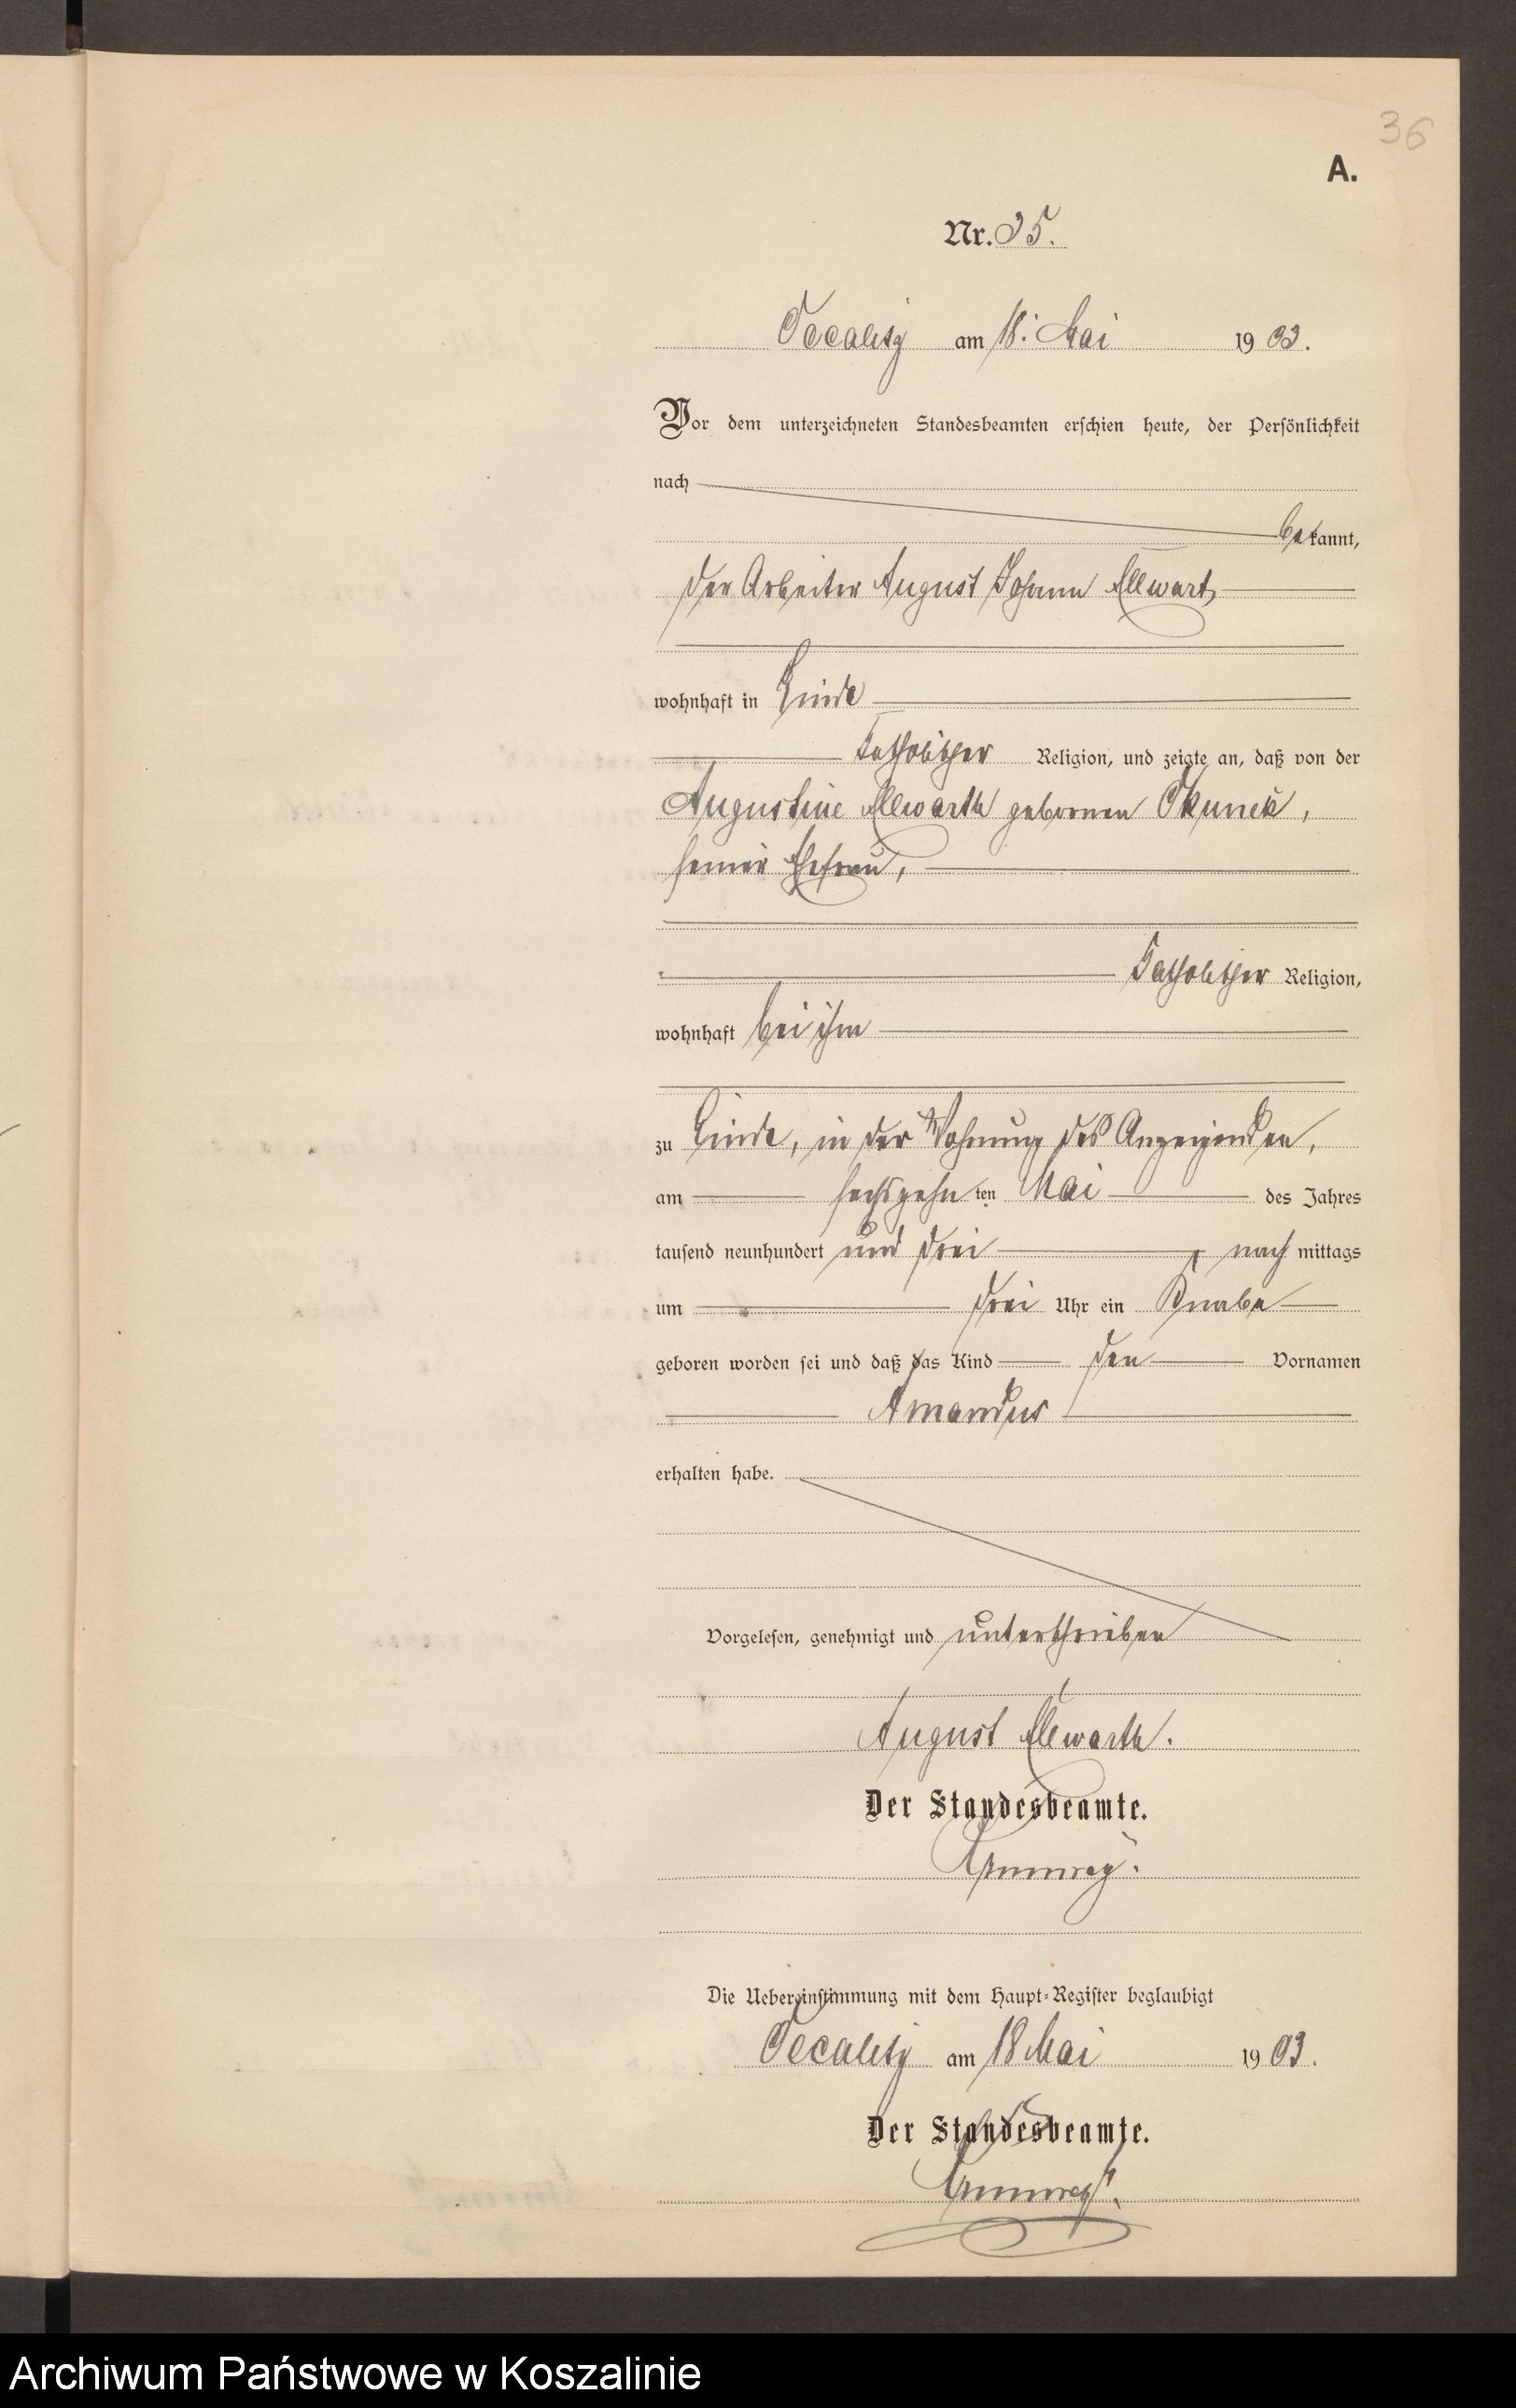 36
A.
Nr. 35.
am 18. Mai 1903.
Vor dem unterzeichneten Standesbeamten erschien heute, der Persönlichkeit
nach
bekannt,
der Arbeiter August Johann Ellwart,
wohnhaft in Linde
katholischer Religion, und zeigte an, daß von der
Augustine Ellwarth gebornen
seiner Ehefrau,
katholischer Religion,
wohnhaft bei ihm
zu Linde, in der Wohnung des Anzeigenden,
am sechszehnten Mai des Jahres
tausend neunhundert und drei, nachmittags
um drei Uhr ein Knabe
geboren worden sei und daß das Kind den Vornamen
Amandus
erhalten habe.
Vorgelesen, genehmigt und unterschrieben
August Ellwarth.
Der Standesbeamte.
Die Uebereinstimmung mit dem Haupt-Register beglaubigt
am 18 Mai 1903.
Der Standesbeamte.
Archiwum Państwowe w Koszalinie